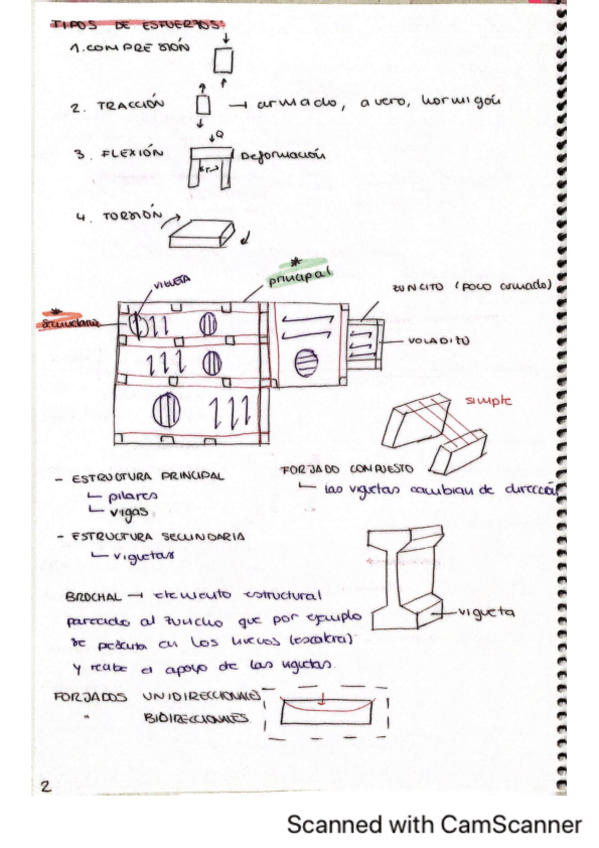 TIPOS DE ESFUERZOS:
1. COMPRESIÓN
2. TRACCIÓN → armado, acero, hormigón
Q
3. FLEXIÓN Deformación
4. TORSIÓN
* principal
VIGUETA
ZUNCITO (POCO armado)
* Secundaria
VOLADITO
simple
- ESTRUCTURA PRINCIPAL
FORJADO COMPUESTO
pilares
las viguetas cambian de dirección
vigas
- ESTRUCTURA SECUNDARIA
viguetas
BROCHAL → elemento estructural
vigueta
parecido al zuncho que por ejemplo
se pedunta en los huecos (escalera)
y recibe el apoyo de las viguetas.
FORJADOS UNIDIRECCIONALES
" BIDIRECCIONALES
2
Scanned with CamScanner